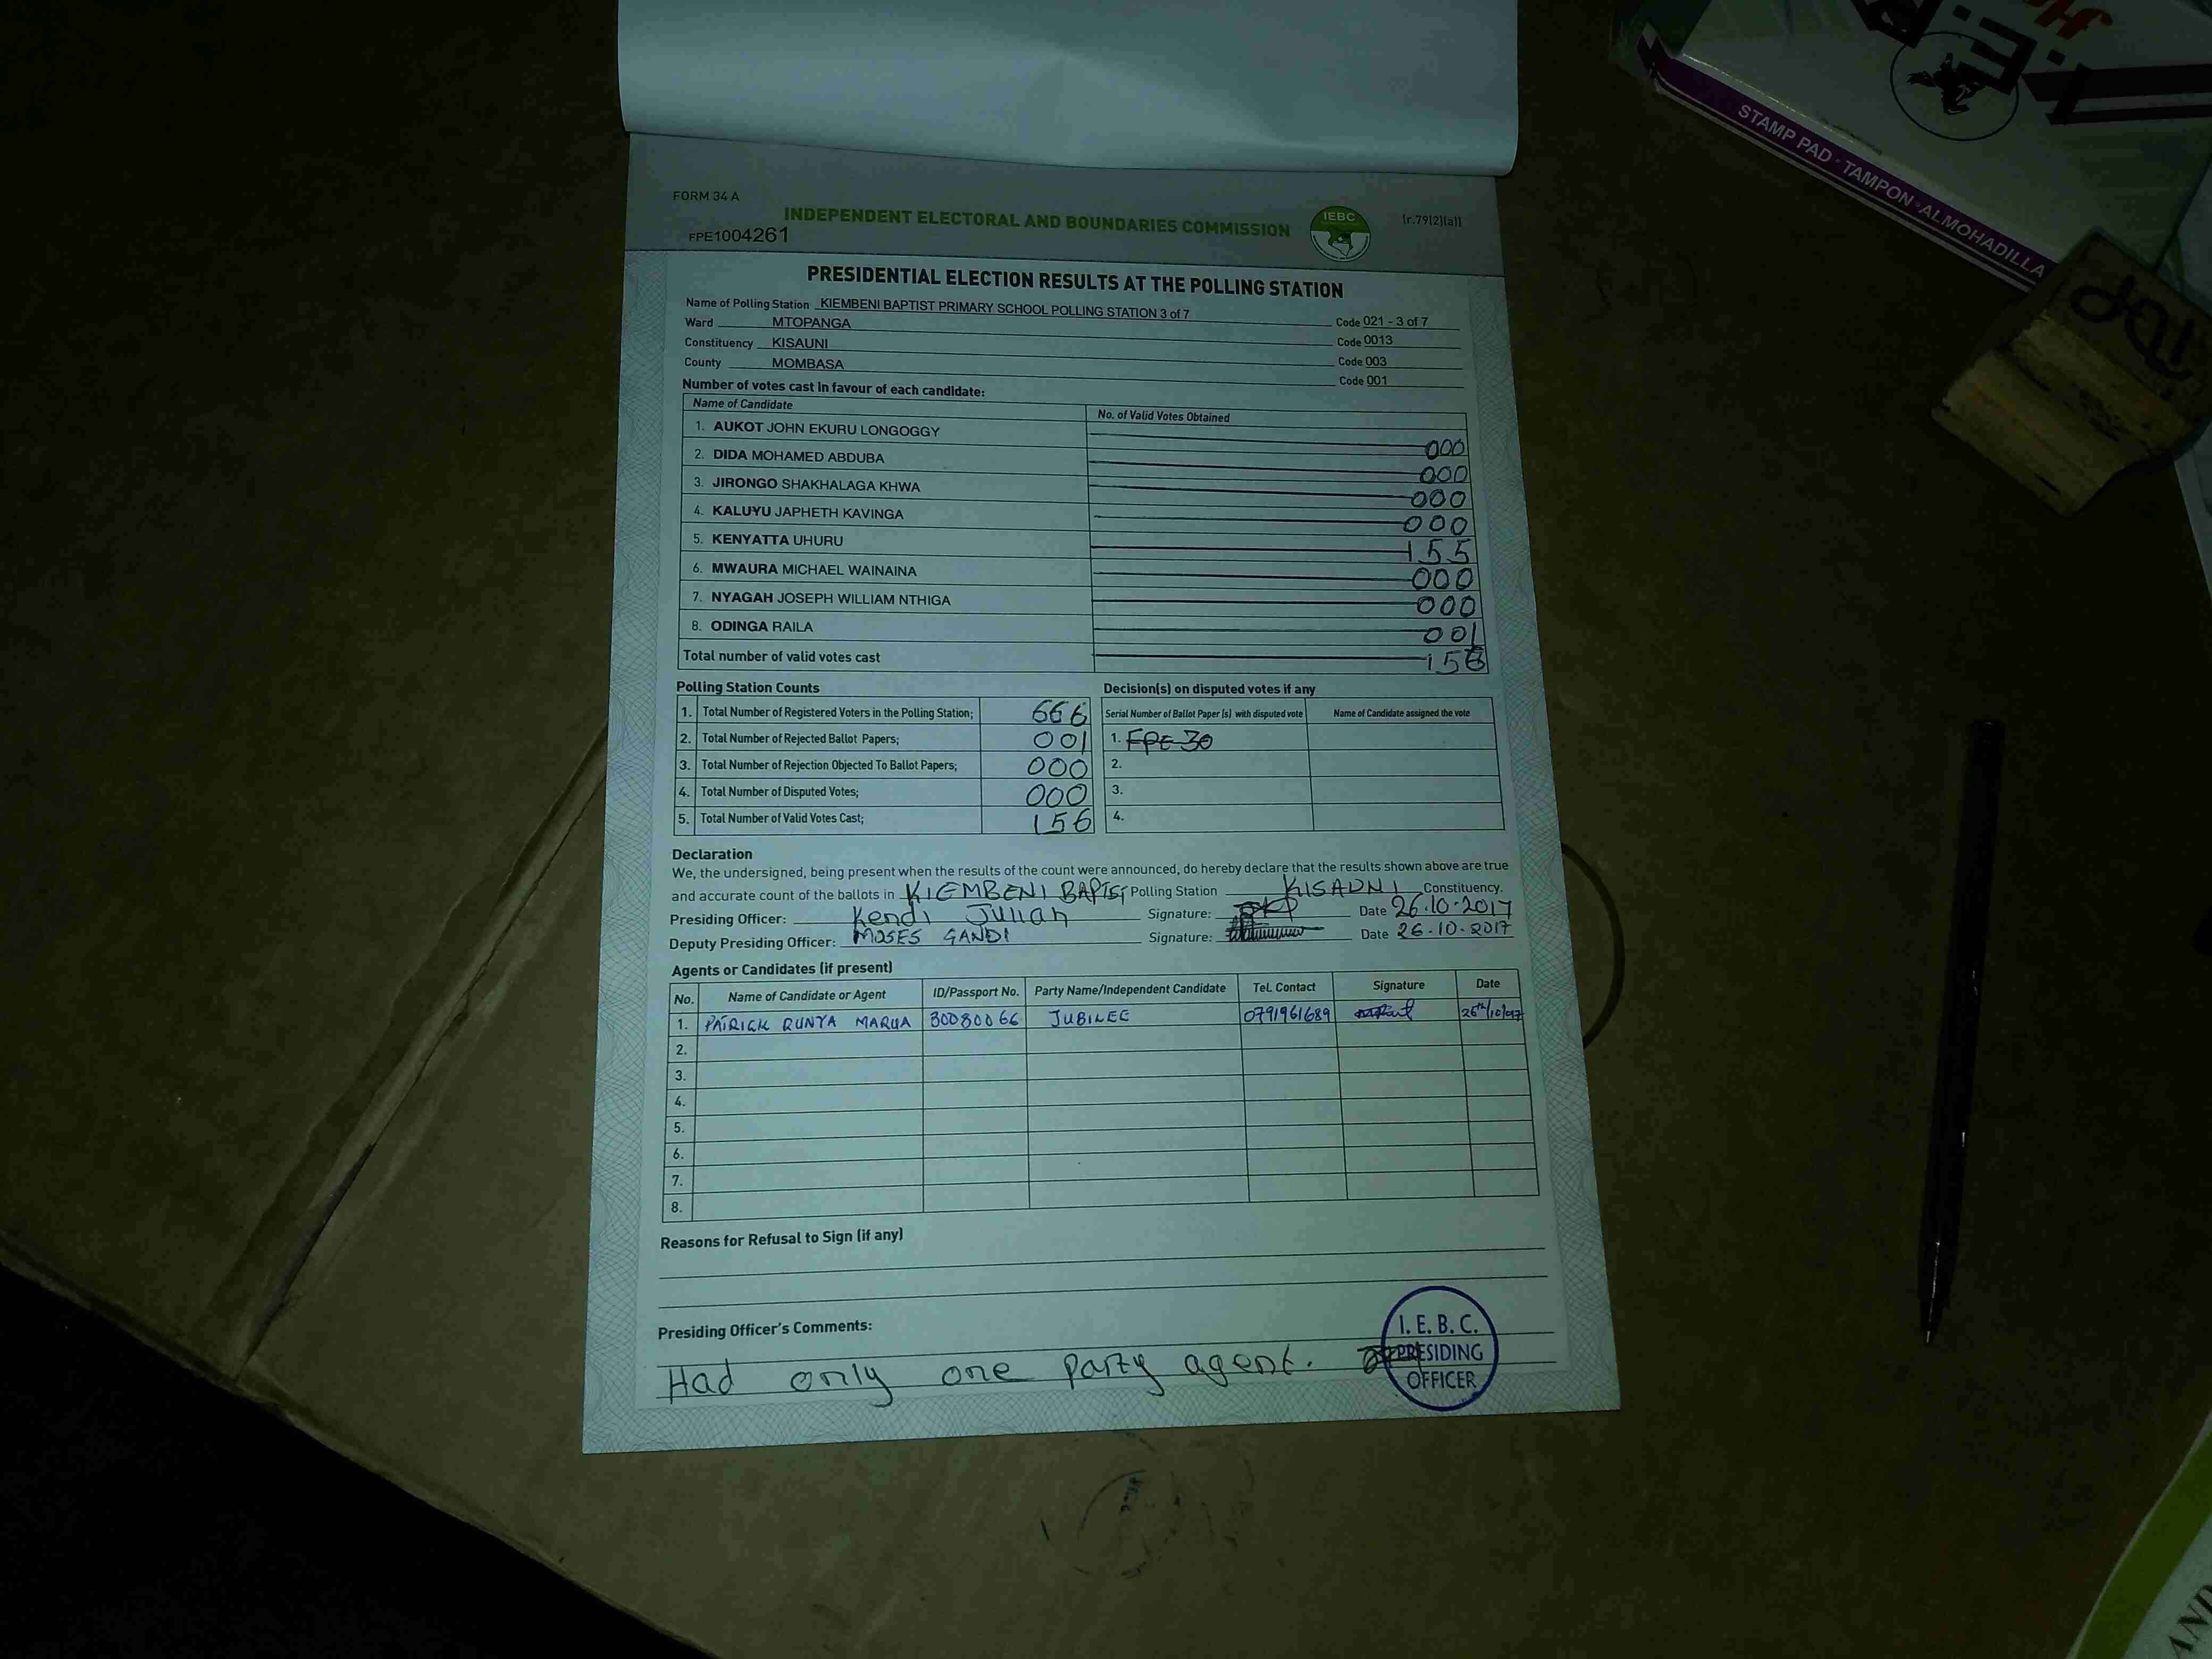 FORM 34 A
INDEPENDENT ELECTORAL AND BOUNDARIES COMMISSION
IEBC
(r.79(2)(a))
FPE1004261
PRESIDENTIAL ELECTION RESULTS AT THE POLLING STATION
Name of Polling Station KIEMBENI BAPTIST PRIMARY SCHOOL POLLING STATION 3 of 7 Code 021 - 3 of 7
Ward MTOPANGA Code 0013
Constituency KISAUNI Code 003
County MOMBASA Code 001
Number of votes cast in favour of each candidate:
Name of Candidate No. of Valid Votes Obtained
1. AUKOT JOHN EKURU LONGOGGY 000
2. DIDA MOHAMED ABDUBA 000
3. JIRONGO SHAKHALAGA KHWA 000
4. KALUYU JAPHETH KAVINGA 000
5. KENYATTA UHURU 155
6. MWAURA MICHAEL WAINAINA 000
7. NYAGAH JOSEPH WILLIAM NTHIGA 000
8. ODINGA RAILA 001
Total number of valid votes cast 156
Polling Station Counts
1. Total Number of Registered Voters in the Polling Station; 666
2. Total Number of Rejected Ballot Papers; 001
3. Total Number of Rejection Objected To Ballot Papers; 000
4. Total Number of Disputed Votes; 000
5. Total Number of Valid Votes Cast; 156
Decision(s) on disputed votes if any
Serial Number of Ballot Paper (s) with disputed vote Name of Candidate assigned the vote
1. FPE 30
2.
3.
4.
Declaration
We, the undersigned, being present when the results of the count were announced, do hereby declare that the results shown above are true
and accurate count of the ballots in KIEMBENI BAPTIST Polling Station KISAUNI Constituency.
Presiding Officer: Kendi Julian Signature: Date 26.10.2017
Deputy Presiding Officer: MOSES GANDI Signature: Date 26.10.2017
Agents or Candidates (if present)
No. Name of Candidate or Agent ID/Passport No. Party Name/Independent Candidate Tel. Contact Signature Date
1. PATRICK RUNYA MARUA 30080066 JUBILEE 0791961689
2.
3.
4.
5.
6.
7.
8.
Reasons for Refusal to Sign (if any)
Presiding Officer's Comments:
Had only one party agent.
I. E. B. C.
PRESIDING
OFFICER
STAMP PAD · TAMPON · ALMOHADILLA